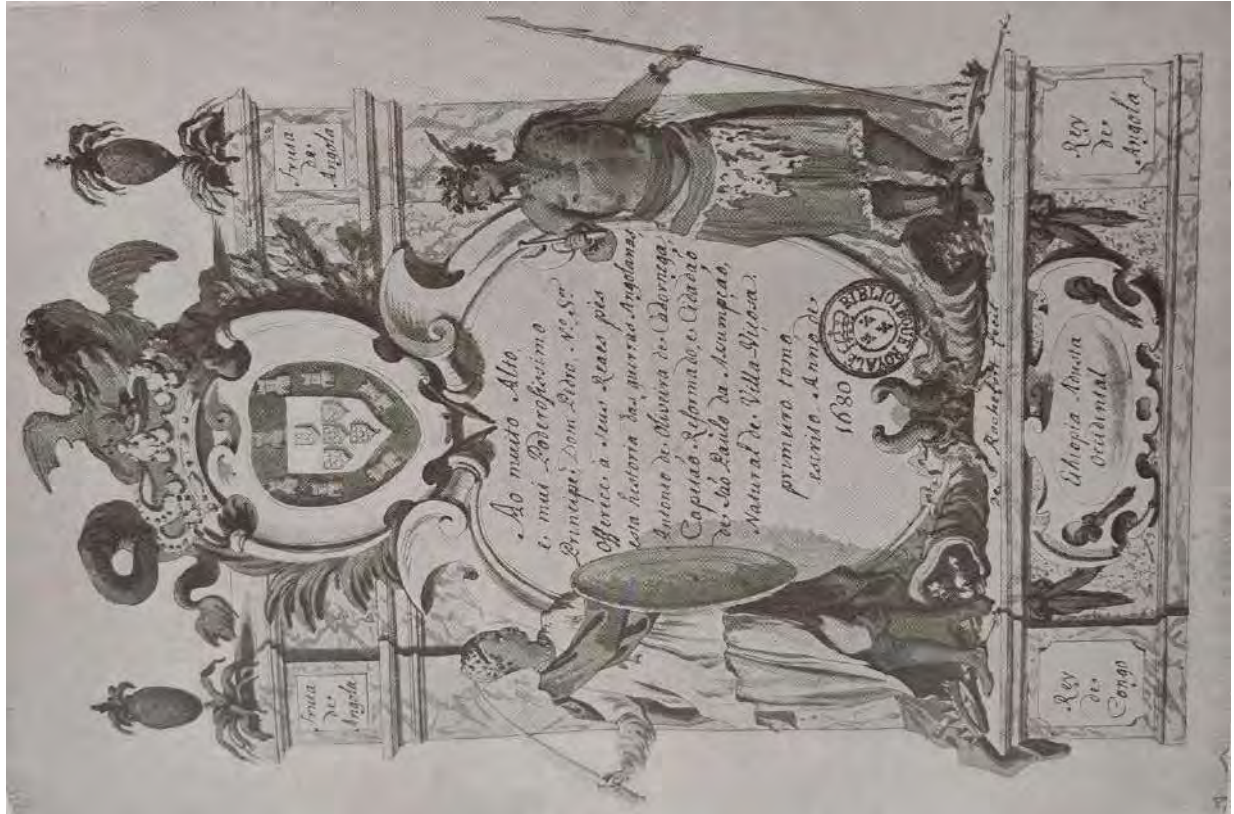 Fruta
de
Angola
Fruta
de
Angola
Ao muito Alto
e mui Poderosissimo
Principe Dom Pedro N.º S.or
Offerece a seus Reaes pés
esta historia das guerras Angolanas,
Antonio de Oliveira de Cadornega
Capitaõ Reformado, e Cidadaõ
de Saõ Paulo da Assumpçaõ,
Natural de Villa Viçosa.
primeiro tomo
escrito Anno de
1680
BIBLIOTHEQUE ROYALE
de Rochefort fecit
Rey
de
Congo
Ethiopia Adusta
Occidental
Rey
de
Angola